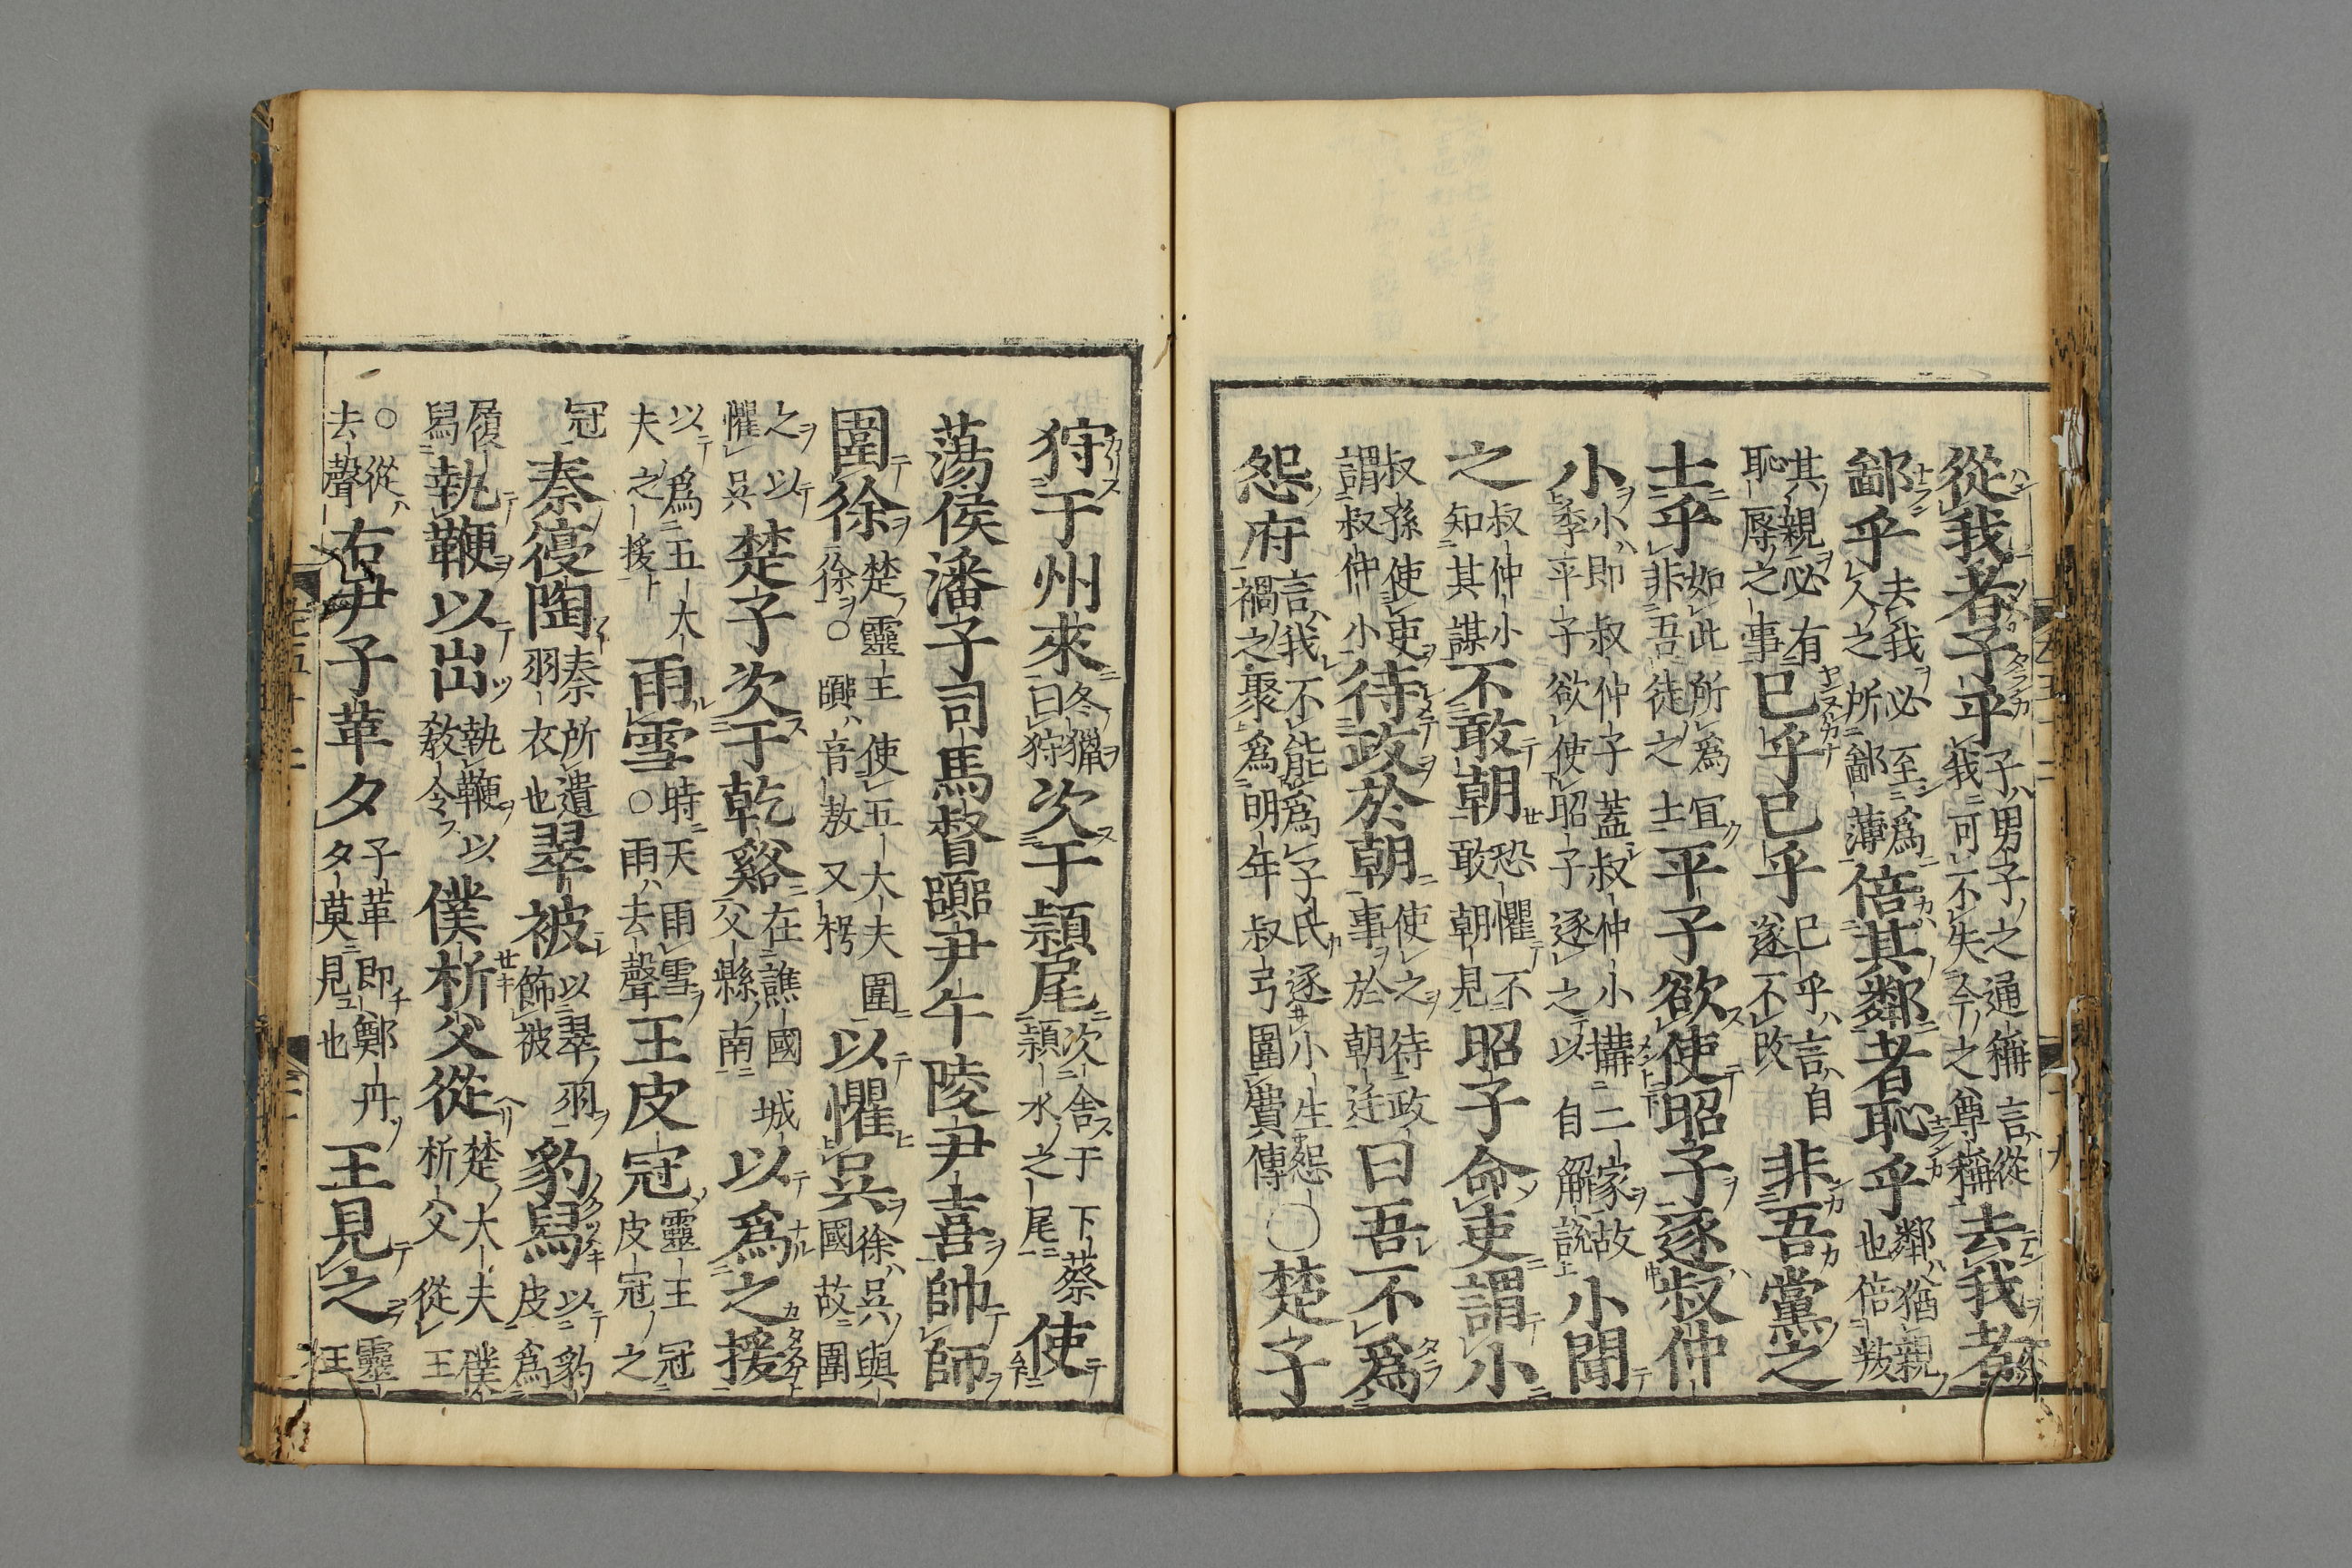 從我者子乎子男子之通稱言從我可不失今之尊稱去我者
鄙乎去我必至爲人之所鄙薄倍其鄰者恥乎鄰猶親也倍叛
其親必有恥辱之事已乎已乎已乎言自遂不改非吾黨之
士乎如此所爲宜非吾徒之士平子欲使昭子逐叔仲
小小即叔仲子蓋叔仲小構二家故季平子欲使昭子逐之以自解說小聞
之叔仲小知其謀不敢朝恐懼不敢朝見昭子命吏謂小
叔孫使吏謂叔仲小待政於朝使之待政事於朝廷曰吾不爲
怨府言我不能爲季氏逐小生怨禍之聚爲明年叔弓圍費傳○楚子
狩于州來冬獵曰狩次于潁尾次舍于潁水之尾下蔡使
蕩侯潘子司馬督囂尹午陵尹喜帥師
圍徐楚靈王使五大夫圍徐○囂音敖又枵以懼吳徐吳與國故圍
之以懼吳楚子次于乾谿在譙國城父縣南以爲之援
以爲五大夫之援雨雪時天雨雪○雨去聲王皮冠靈王冠皮冠之
冠秦復陶秦所遺羽衣也翠被以翠羽飾被豹舄以豹皮爲
履舄執鞭以出執鞭以教令僕析父從楚大夫僕析父從王
○從去聲右尹子革夕子革即鄭丹夕莫見也王見之靈王